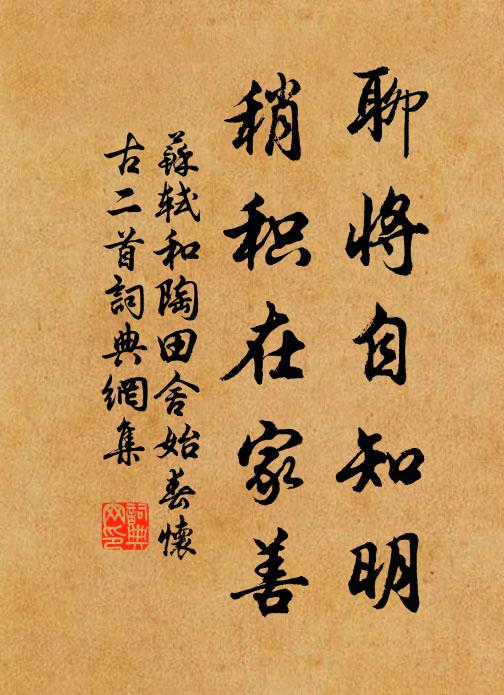 聊将自知明
稍积在家善
蘇軾和陶田舍始春懷
古二首詞典網集
詞典
网印